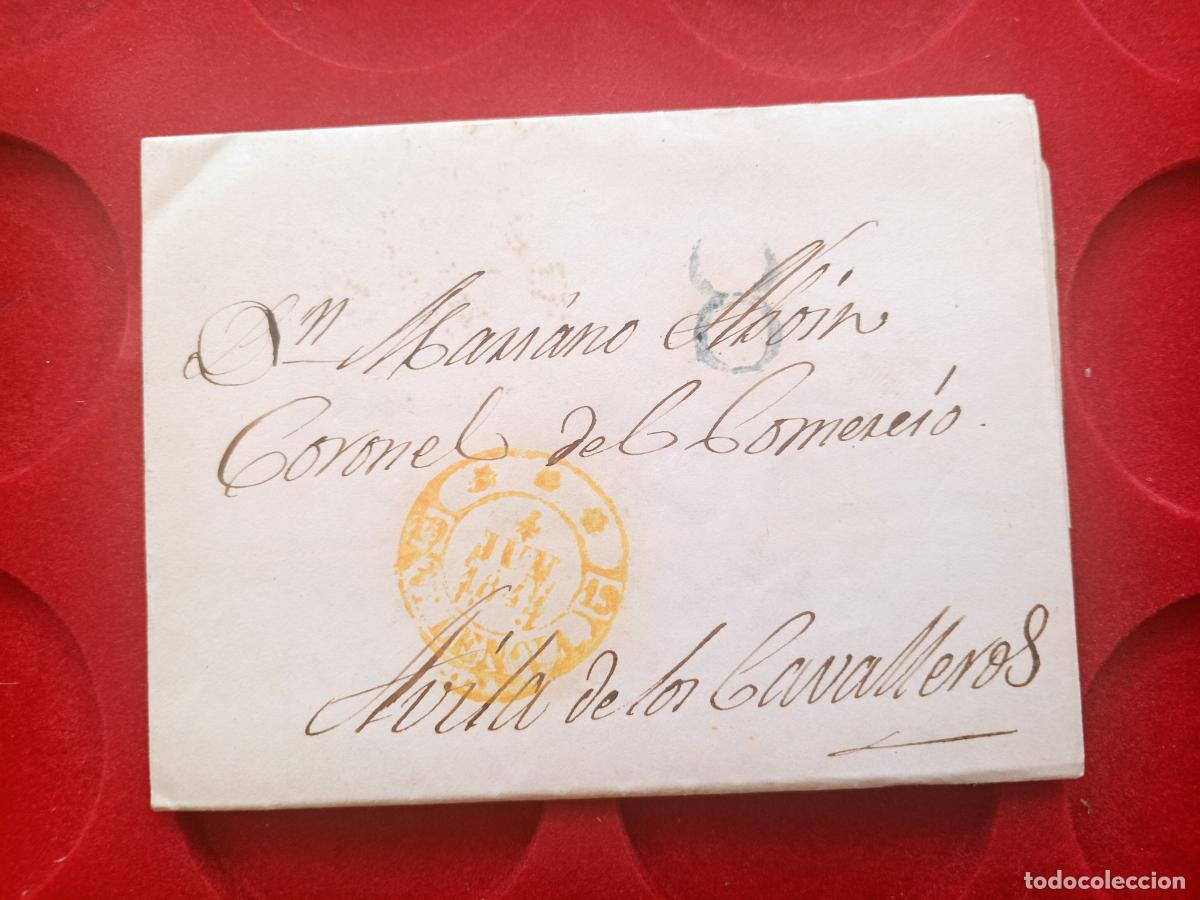 8
Dn Mariano
Coronel del Comercio.
4
JUN
Avila de los Cavalleros
todocoleccion